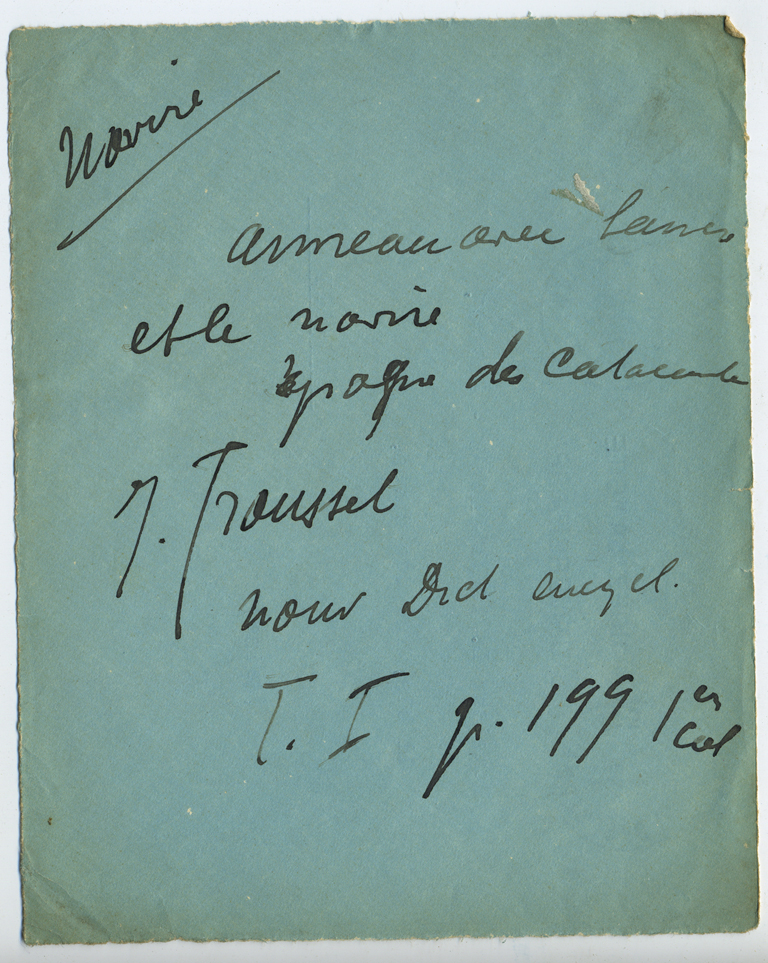 Navire
anneau avec l'ancre
et le navire
Epoque des Catacombes
J. Trousset
nouv Dict encycl.
T. I p. 199 1er
Col